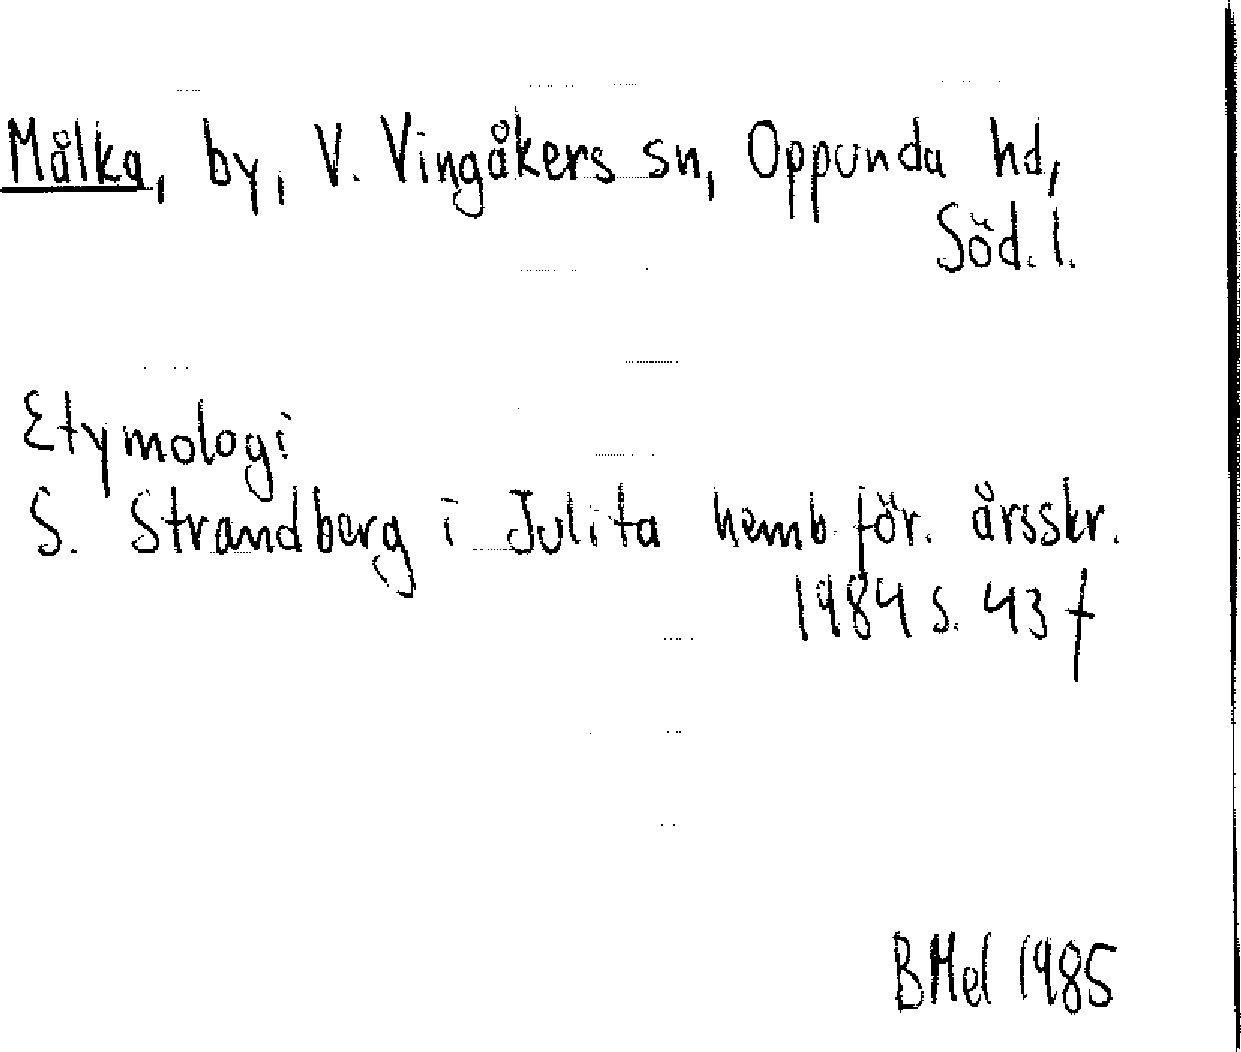 Målka, by, V. Vingåkers sn, Oppunda hd,
Söd. l.
Etymologi
S. Strandberg i Julita hemb.för. årsskr.
1984 s. 43 f
BMel 1985